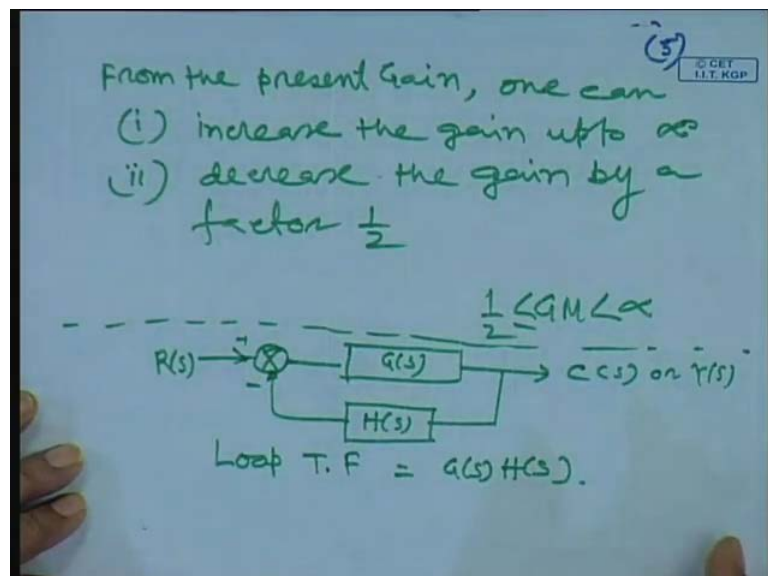 (5)
© CET
I.I.T. KGP
From the present Gain, one can
(i) increase the gain upto ∞
(ii) decrease the gain by a
factor 1/2
1/2 ≤ GM < ∝
R(s) + G(s) C(s) or Y(s)
-
H(s)
Loop T.F = G(s) H(s).